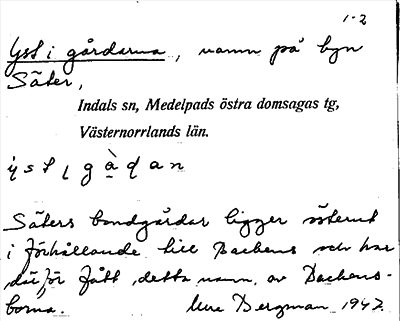 1-2
Yst i gårdarna, namn på byn
Säter,
Indals sn, Medelpads östra domsagas tg,
Västernorrlands län.
y s t i g à d a n
Säters bondgårdar ligger österut
i förhållande till Backens och har
därför fått detta namn av Backens-
borna. Bergman 1947.